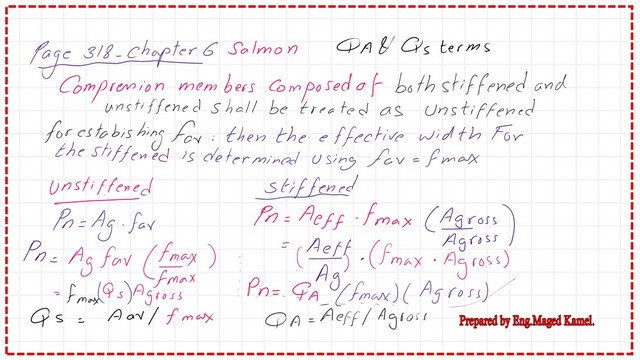 Page 318-Chapter 6 Salmon QA & Qs terms
Compression members composed of both stiffened and
unstiffened shall be treated as unstiffened
for estabishing fav: then the effective width For
the stiffened is determined using fav = fmax
unstiffened
Pn = Ag . fav
Pn = Ag fav (fmax / fmax)
= fmax (Qs) Agross
Qs = Aav / fmax
stiffened
Pn = Aeff . fmax (Agross / Agross)
= (Aeff / Ag) . (fmax . Agross)
Pn = QA (fmax) (Agross)
QA = Aeff / Agross
Prepared by Eng.Maged Kamel.